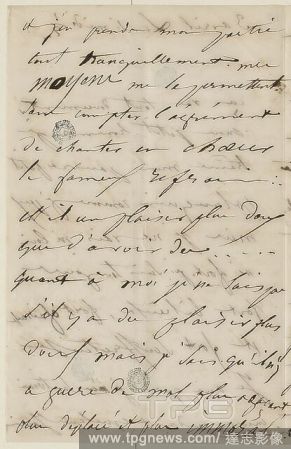 et j'en prends mon partie
tout tranquillement. mes
moyens me le permettent
sans compter l'agrément
de chanter en chœur
le fameux refrain :
est-il un plaisir plus doux
que d'avoir des . . . . .
quant à moi je ne sais pas
s'il y a du plaisir plus
doux mais je sais qu'il n'y
a guère de mot plus
plus déplacé et plus
TPG
www.tpgnews.com / 達志影像